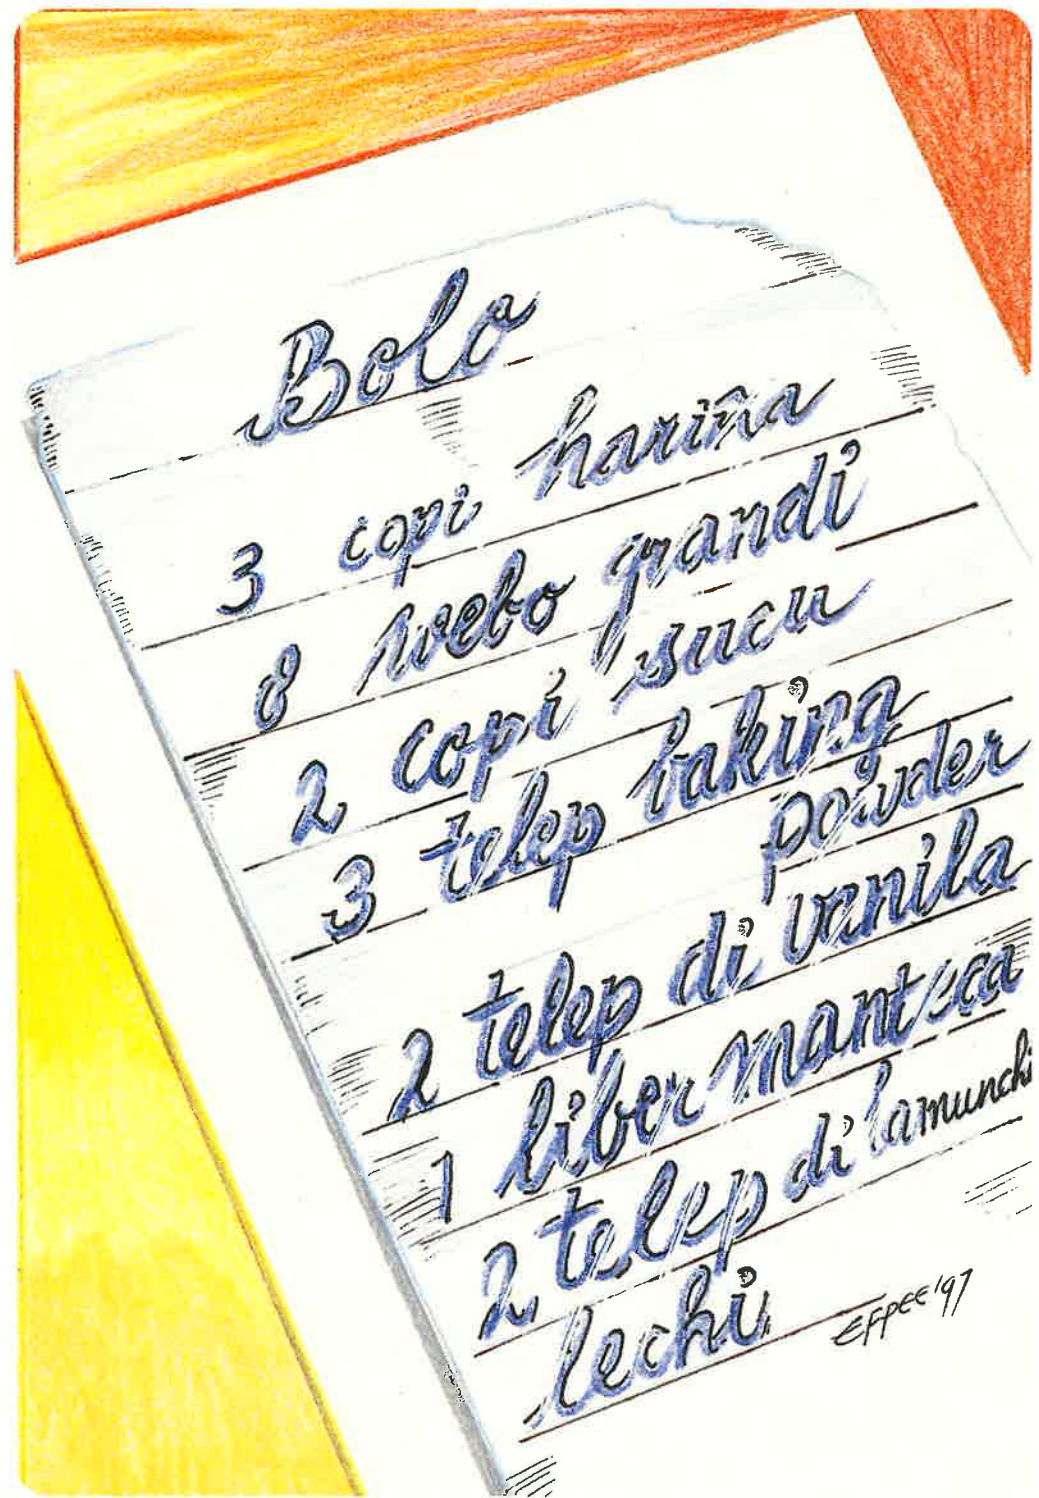 Bolo
3 copi hariña
8 webo grandi
2 copi sucu
3 telep baking
powder
2 telep di vanila
1 liber manteca
2 telep di lamunchi
lechi
EFPEE '97